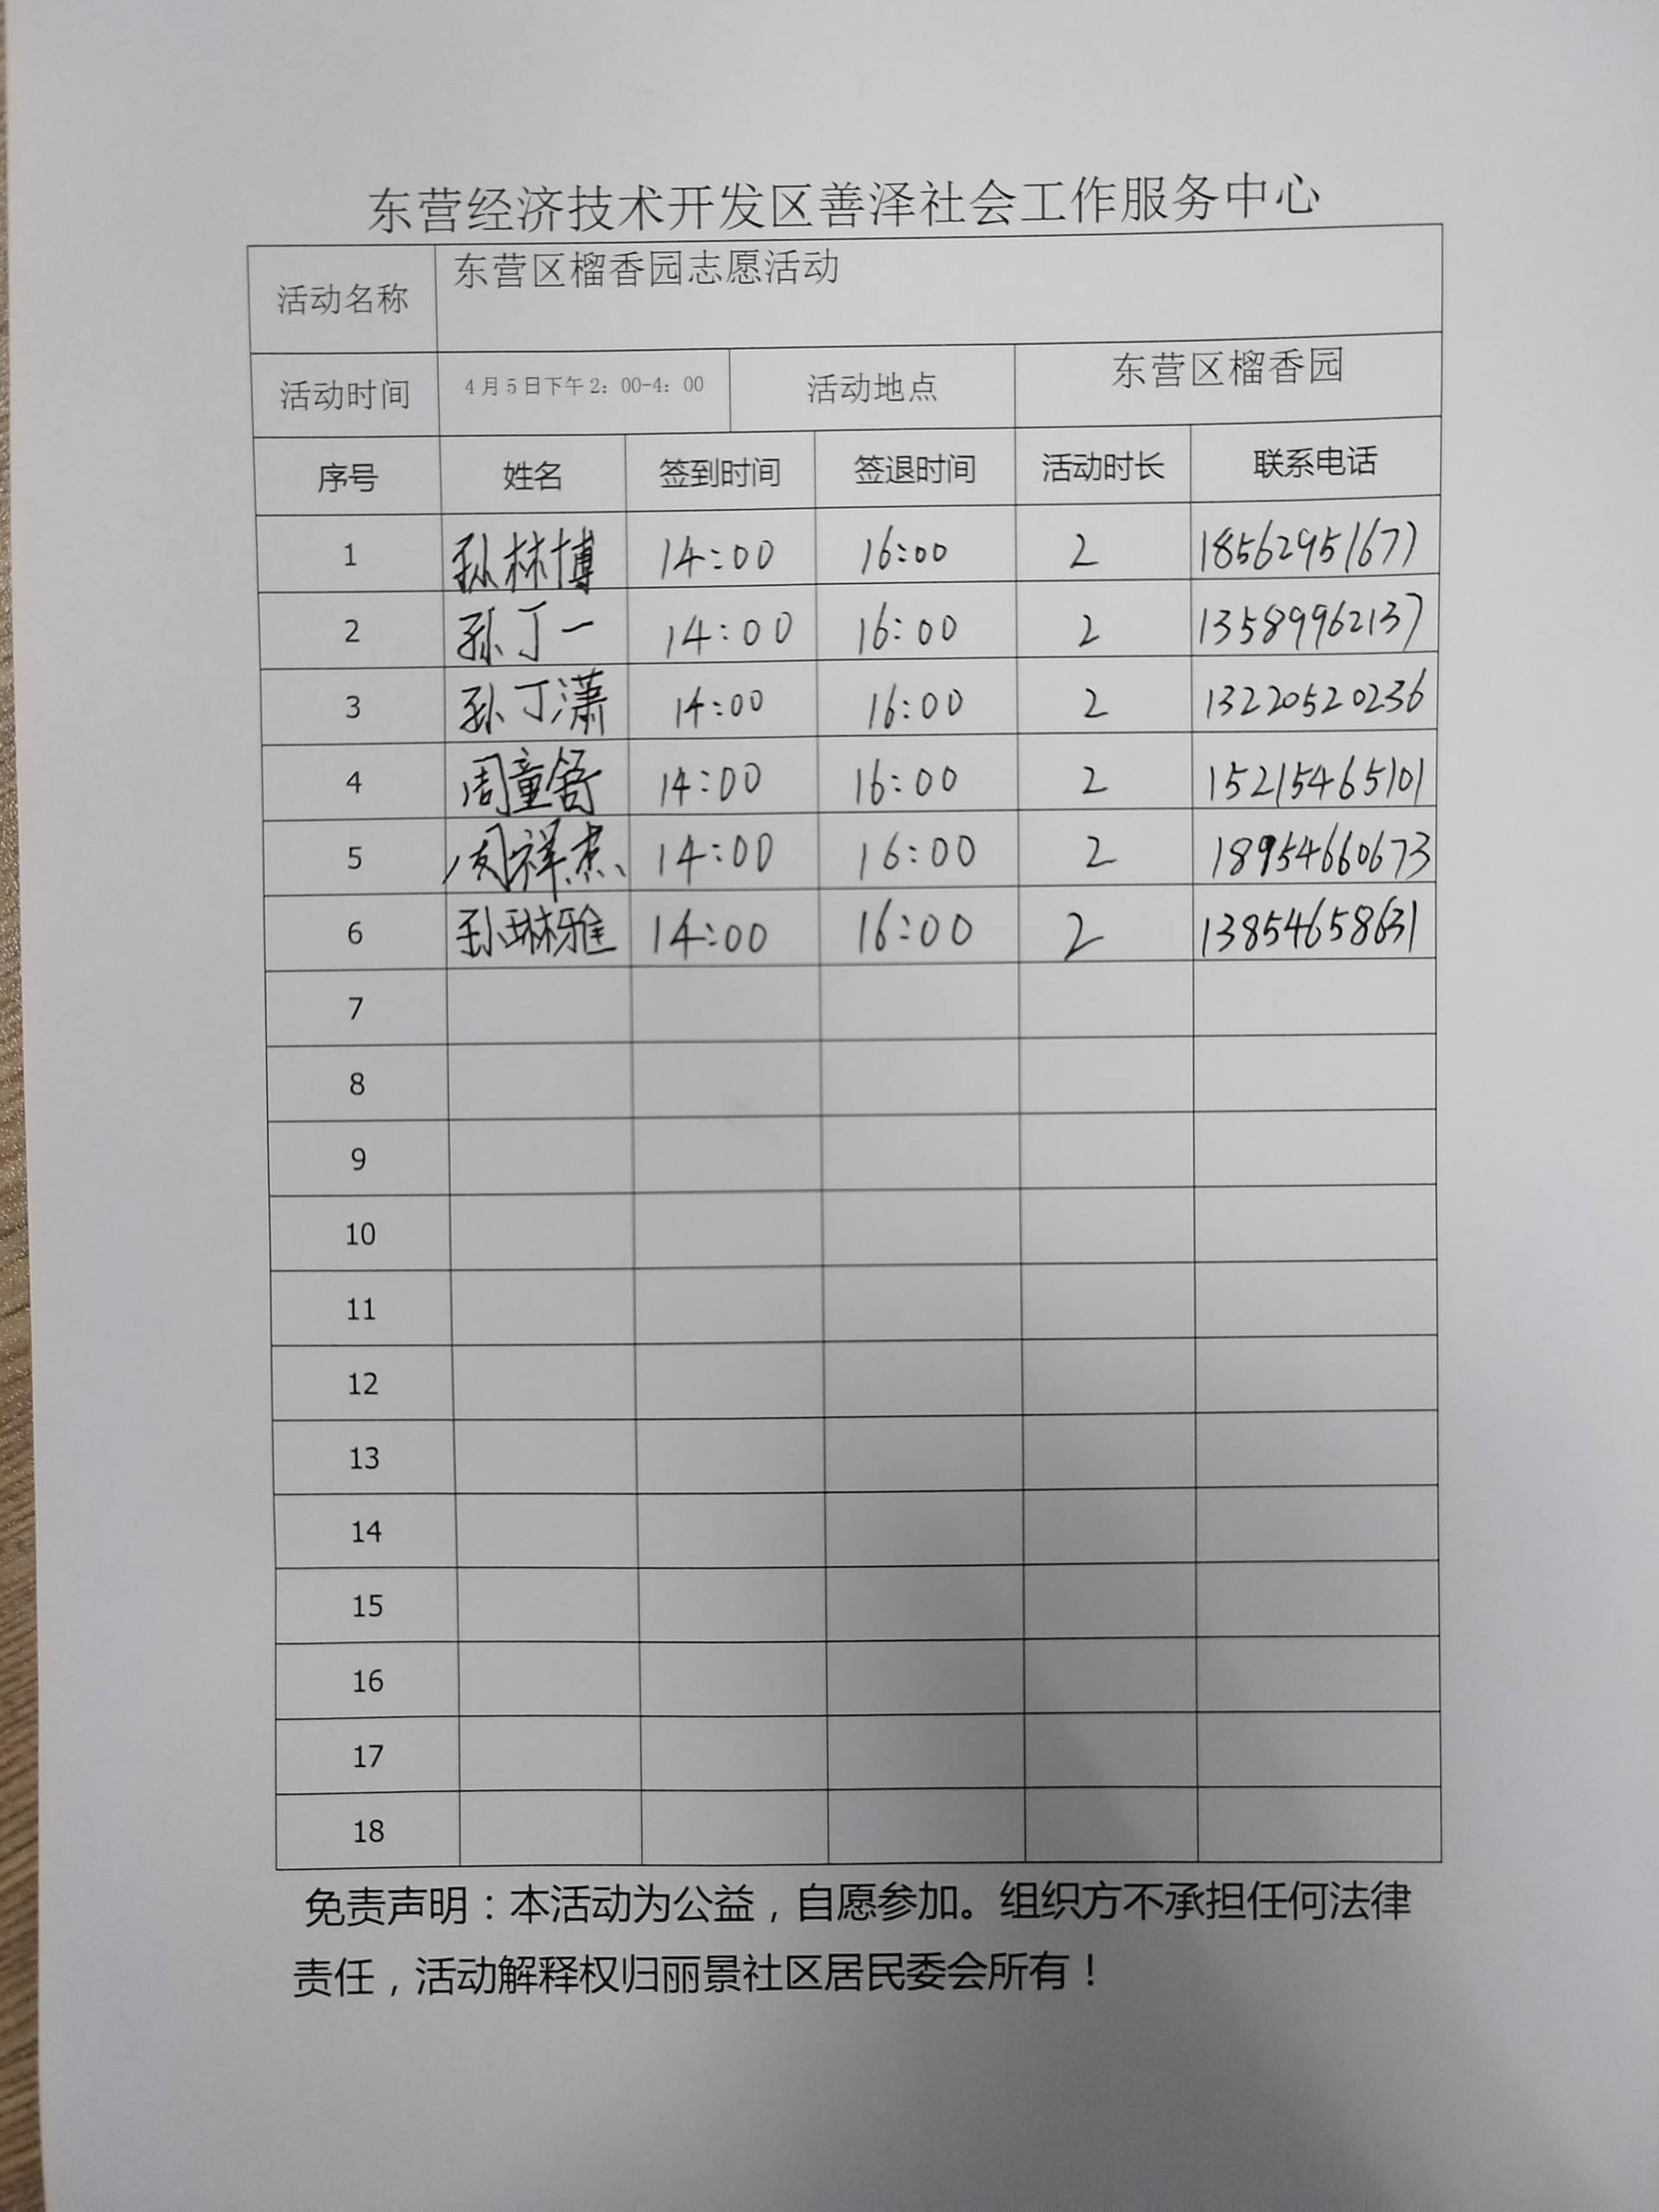 东营经济技术开发区善泽社会工作服务中心
活动名称 东营区榴香园志愿活动
活动时间 4月5日下午2：00-4：00 活动地点 东营区榴香园
序号 姓名 签到时间 签退时间 活动时长 联系电话
1 孙林博 14:00 16:00 2 18562951677
2 孙丁一 14:00 16:00 2 13589962137
3 孙丁潇 14:00 16:00 2 13220520236
4 周童舒 14:00 16:00 2 15215465101
5 周祥杰 14:00 16:00 2 18954660673
6 孙琳雅 14:00 16:00 2 13854658631
7
8
9
10
11
12
13
14
15
16
17
18
免责声明：本活动为公益，自愿参加。组织方不承担任何法律
责任，活动解释权归丽景社区居民委会所有！